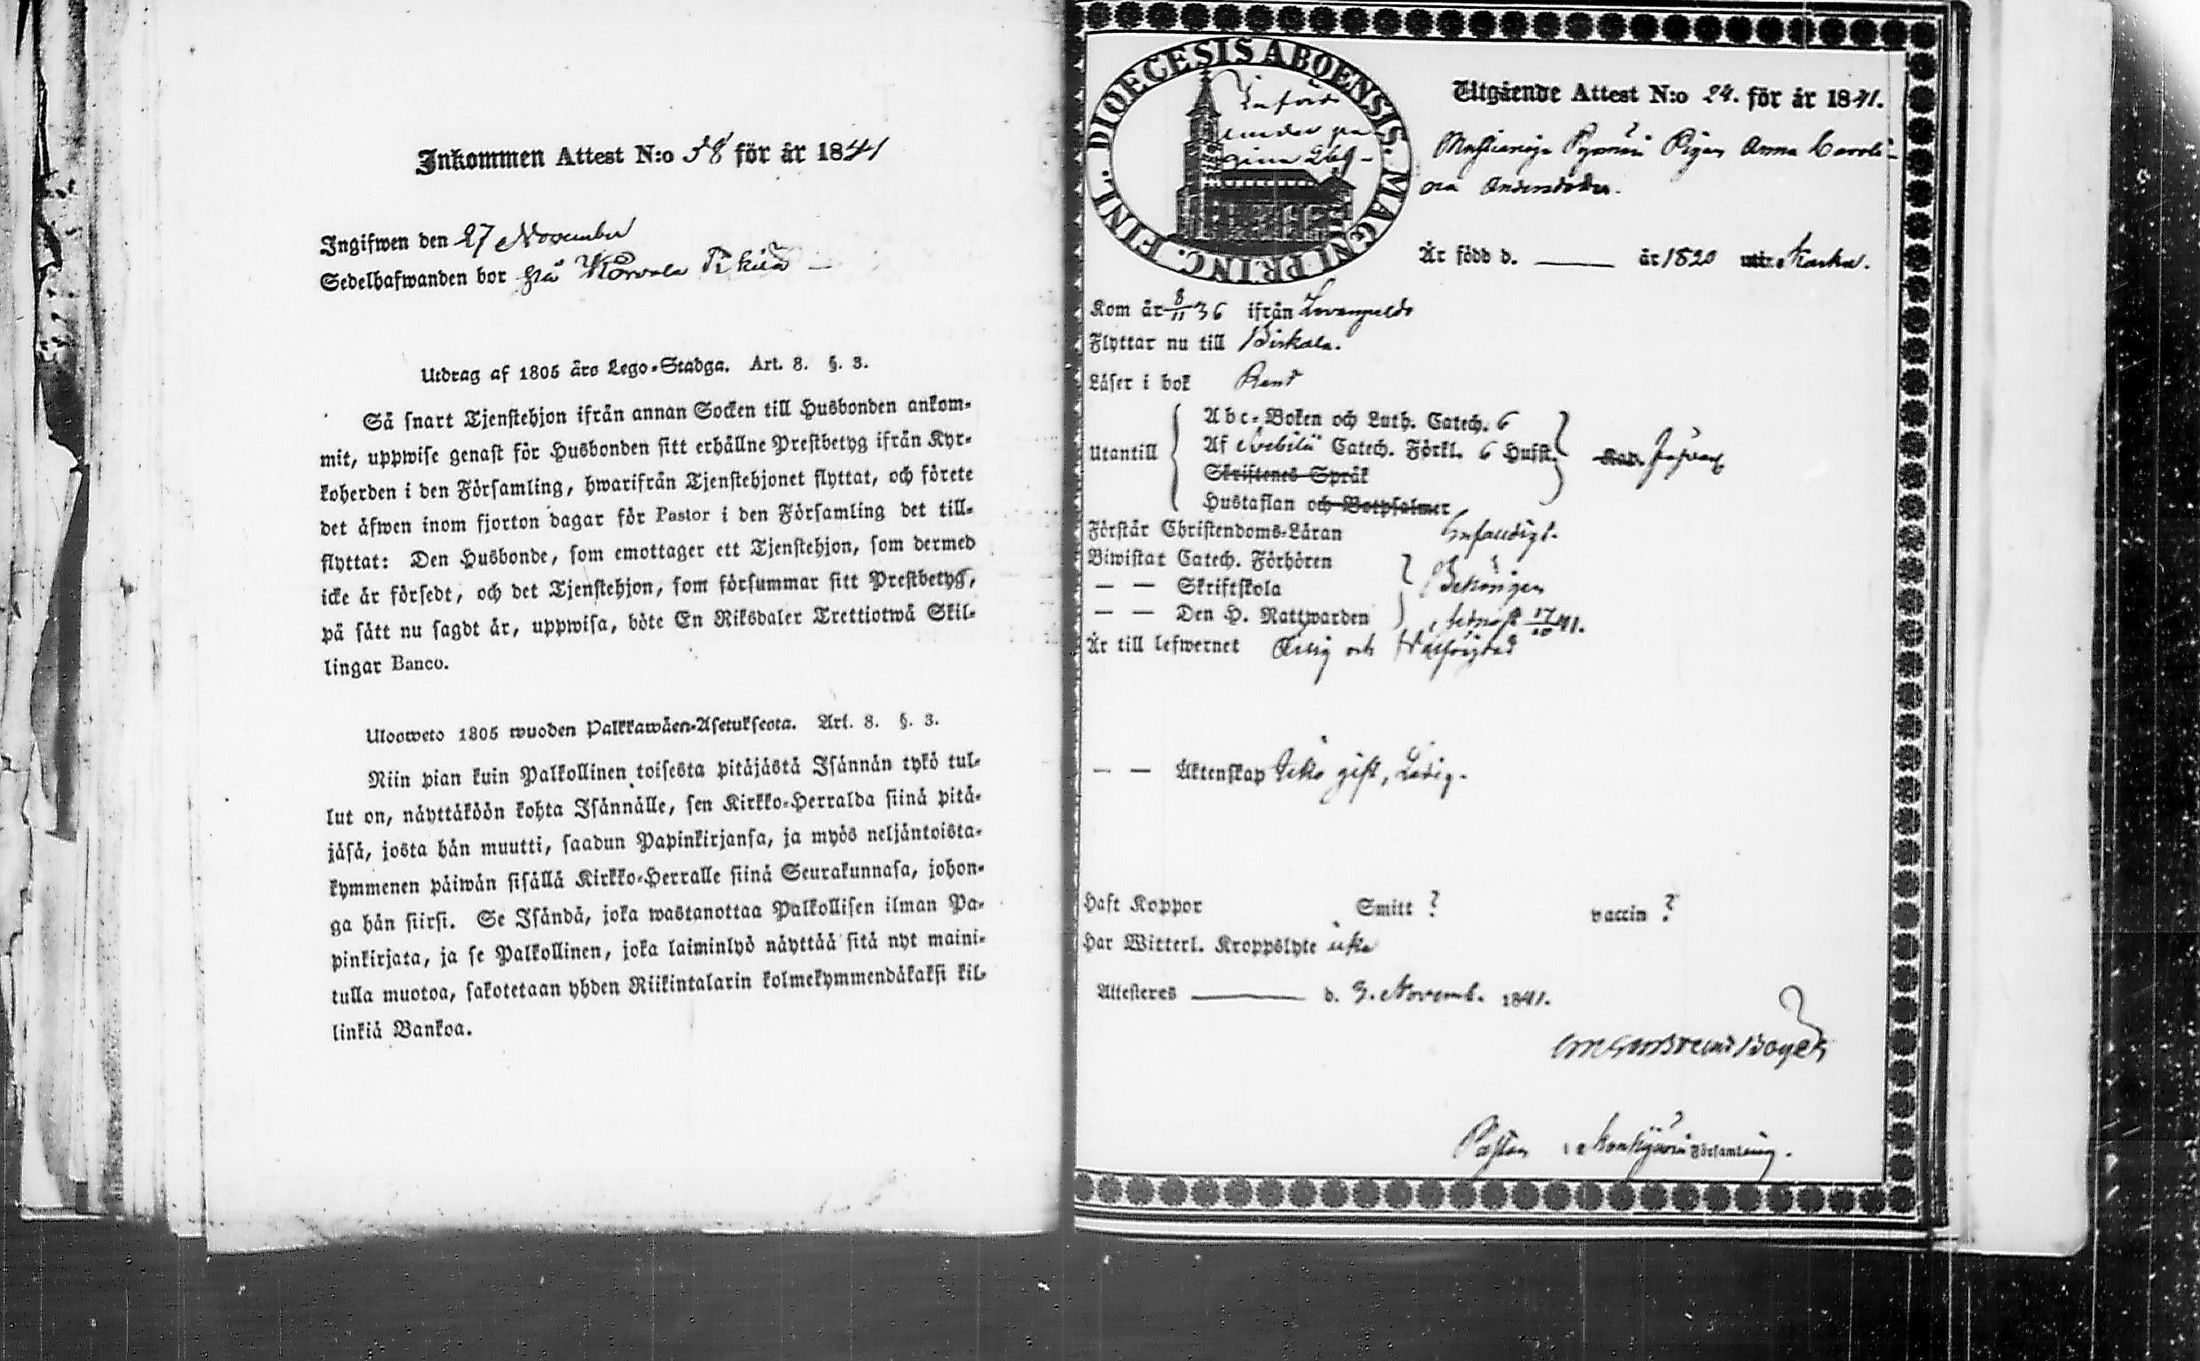 Inkommen Attest N:o 58 för år 1841
Ingifwen den 27 November
Sedelhafwanden bor på
Utdrag af 1805 års Lego-Stadga. Art. 8. §. 3.
Så snart Tjenstehjon ifrån annan Socken till Husbonden ankom-
mit, uppwise genast för Husbonden sitt erhållne Prestbetyg ifrån Kyr-
koherden i den Församling, hwarifrån Tjenstehjonet flyttat, och förete
det åfwen inom fjorton dagar för Pastor i den Församling det till-
flyttat: Den Husbonde, som emottager ett Tjenstehjon, som dermed
icke är försedt, och det Tjenstehjon, som försummar sitt Prestbetyg,
på sätt nu sagdt är, uppwisa, böte En Riksdaler Trettiotwå Skil-
lingar Banco.
Ulosweto 1805 wuoden Palkkawäen-Asetuksesta. Art. 8. §. 3.
Niin pian kuin Palkollinen toisesta pitäjästä Isännän tykö tul-
lut on, näyttäköön kohta Isännälle, sen Kirkko-Herralda siinä pitä-
jäsä, josta hän muutti, saadun Papinkirjansa, ja myös neljäntoista-
kymmenen päiwän sisällä Kirkko-Herralle siinä Seurakunnasa, johon-
ga hän siirsi. Se Isändä, joka wastanottaa Palkollisen ilman Pa-
pinkirjata, ja se Palkollinen, joka laiminlyö näyttää sitä nyt maini-
tulla muotoa, sakotetaan yhden Riikintalarin kolmekymmendäkaksi kil-
linkiä Bankoa.
DIOECESIS ABOENSIS. MAGNI PRINC. FINL.
Införd
under pa
gina 269
Utgående Attest N:o 24. för år 1841.
Pigan Anna Caroli-
na Andersdotter.
Är född d. år 1820 Karku.
Kom år 8/11 36 ifrån
Flyttar nu till Birkala.
Läser i bok Rent
Utantill
Abc-Boken och Luth. Catech. 6
Af Svebilii Catech. Förkl. 6 Hufst.
Skriftenes Språk
Hustaflan och Botpsalmer
Förstår Christendoms-Läran Enfaldigt.
Biwistat Catech. Förhören
— — Skriftskola Behörigen
— — Den H. Nattwarden sednast 17/10 41.
Är till lefwernet Ärlig och Wälfrägdad
— — Äktenskap Icke gift, Ledig.
Haft Koppor Smitt ? vaccin ?
Har Witterl. Kroppslyte icke
Attesteres d. 3. Novemb. 1841.
Pastor i Församling.